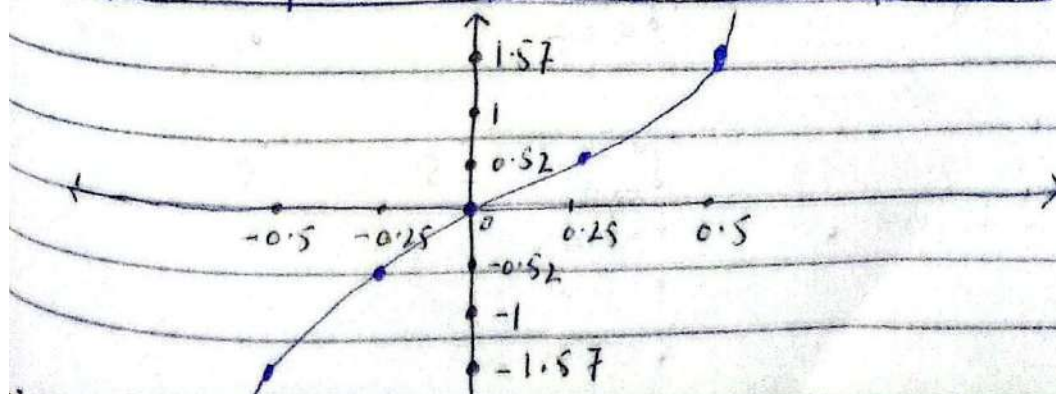 1.57
1
0.52
-0.5 -0.25 0 0.25 0.5
-0.52
-1
-1.57